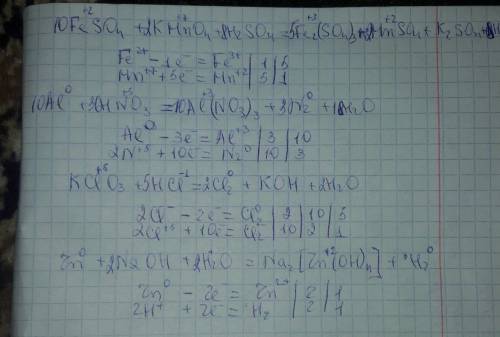 10FeSO₄ + 2KMnO₄ + 8H₂SO₄ = 5Fe₂(SO₄)₃ + 2MnSO₄ + K₂SO₄ +
Fe²⁺ − 1e⁻ = Fe³⁺ | 1 | 5
Mn⁺⁷ + 5e⁻ = Mn⁺² | 5 | 1
10Al⁰ + 36HN⁺⁵O₃ = 10Al⁺³(NO₃)₃ + 3N₂⁰ + 18H₂O
Al⁰ − 3e⁻ = Al⁺³ | 3 | 10
2N⁺⁵ + 10e⁻ = N₂⁰ | 10 | 3
KCl⁺⁵O₃ + 5HCl⁻¹ = 2Cl₂⁰ + KOH + 2H₂O
2Cl⁻ − 2e⁻ = Cl₂⁰ | 2 | 10 | 5
2Cl⁺⁵ + 10e⁻ = Cl₂ | 10 | 2 | 1
Zn⁰ + 2NaOH + 2H₂O = Na₂[Zn⁺²(OH)₄] + H₂⁰
Zn⁰ − 2e = Zn²⁺ | 2 | 1
2H⁺ + 2e⁻ = H₂ | 2 | 1